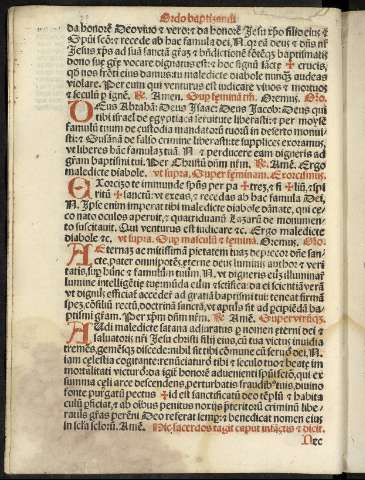 Ordo baptizandi
da honorē Deo viuo ⁊ vero: ⁊ da honorē Jesu xp̄o filio eius ⁊
Spūi scō: ⁊ recede ab hac famula dei. N. qz eā deus ⁊ dn̄s nr̄
Jesus xp̄s ad suā sanctā gr̄am ⁊ bn̄dictionē fōtēqz baptismatis
dono suę grę vocare dignatus est: ⁊ hoc signū sāctę ✠ crucis,
qd nos frōti eius damus tu maledicte diabole nunqz audeas
violare. Per eum qui venturus est iudicare viuos ⁊ mortuos
⁊ seculū p ignē. ℟. Amen. Sup feminā tm̄. Oremus. Oro.
DEus Abrahā: Deus Isaac: Deus Jacob: Deus qui
tibi israel de egyptia ca seruitute liberasti: ⁊ per moyse
famulū tuum de custodia mandatorū tuorū in deserto monui
sti: ⁊ Susānā de falso crimine liberasti: te supplices exoramus,
vt liberes hāc famulaz tuā. N. ⁊ perducere eam digneris ad
gr̄am baptismi tui. Per Christū dūm nr̄m. ℟. Amē. Ergo
maledicte diabole. vt supra. Super feminam. Exorcismus.
EXorcizo te immunde spūs per pa ✠ trez, ⁊ fi ✠ liū, ⁊ spi
ritū ✠ sanctū: vt exeas, ⁊ recedas ab hac famula Dei,
N. Ipse enim imperat tibi maledicte diabole dānate, qui cę-
co nato oculos aperuit, ⁊ quatriduanū Lazarū de monumen-
to suscitauit. Qui venturus est iudicare ⁊c. Ergo maledicte
diabole ⁊c. vt supra. Sup masculū ⁊ feminā. Oremus. Oro.
AEternaz ac iustissimā pietatem tuaz deprecor dn̄e san-
cte, pater omnipotēs, ęterne deus luminis author ⁊ veri
tatis, sup hūnc ⁊ famulū ⁊ tuum. N. vt digneris eūz illuminar
lumine intelligētię tuę: mūda eū ⁊ scifica: da ei scientiā verā
vt dignus efficiat accedere ad gratiā baptismi tui: teneat firmā
spez, cōsiliū rectū, doctrinā sanctā, vt aptus sit ad pcipiēdā ba-
ptismi gr̄am. Per xp̄m dūm nr̄m. ℟. Amē. Super vtrūqz.
AUdi maledicte satana adiuratus p nomen ęterni dei ⁊
saluatoris nr̄i Jesu christi filij eius, cū tua victus inuidia
tremēs, gemēsqz discede: nihil sit tibi cōmune cū seruo dei. N.
iam celestia cogitante: renūciaturo tibi ⁊ seculo tuo: beate im
mortalitati victuro. da igit honorē aduenienti spūi scō, qui ex
summa celi arce descendens, perturbatis fraudibus tuis, diuino
fonte purgatū pectus ✠ id est sanctificatū deo tēplū ⁊ habita
culū pficiat, ⁊ ab oibus penitus noxijs pteritorū criminū libe-
ratus gr̄as perēni Deo referat semp: ⁊ benedicat nomen eius
in scla sclorū. Amē. Hic sacerdos tāgit caput infātis ⁊ dicit.
Nec